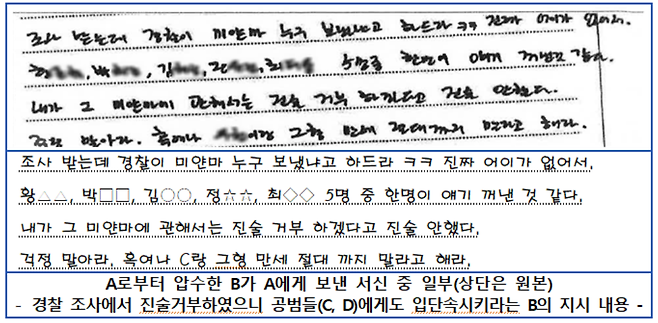 조사 받는데 경찰이 미얀마 누구 보냈냐고 하드라 ㅋㅋ 진짜 어이가 없어서.
황 , 박 , 김 , 정 , 최 5명중 한명이 얘기 꺼낸것 같다.
내가 그 미얀마에 관해서는 진술 거부 하겠다고 진술 안했다.
걱정 말아라. 혹여나 랑 그형 만세 절대까지 말라고 해라.
조사 받는데 경찰이 미얀마 누구 보냈냐고 하드라 ㅋㅋ 진짜 어이가 없어서,
황△△, 박□□, 김○○, 정☆☆, 최◇◇ 5명 중 한명이 얘기 꺼낸 것 같다,
내가 그 미얀마에 관해서는 진술 거부 하겠다고 진술 안했다,
걱정 말아라, 혹여나 C랑 그형 만세 절대 까지 말라고 해라,
A로부터 압수한 B가 A에게 보낸 서신 중 일부(상단은 원본)
- 경찰 조사에서 진술거부하였으니 공범들(C, D)에게도 입단속시키라는 B의 지시 내용 -